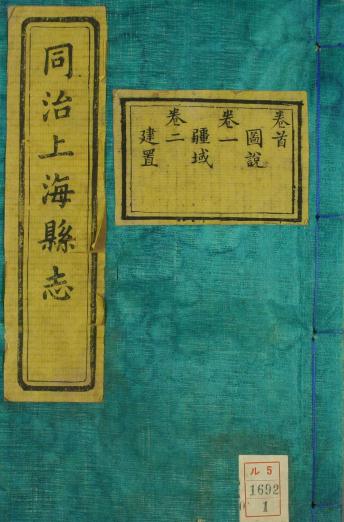 同治上海縣志
卷首
圖說
卷一
疆域
卷二
建置
ル5
1692
1